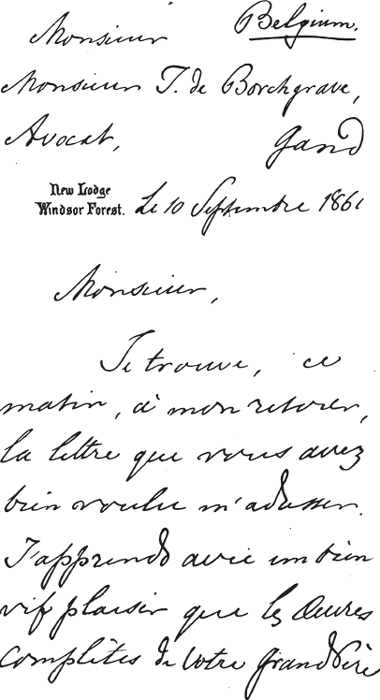 Monsieur Belgium.
Monsieur J. de Borchgrave,
Avocat, Gand
New Lodge
Windsor Forest. Le 10 Septembre 1861
Monsieur,
Je trouve, ce
matin, à mon retour,
la lettre que vous avez
bien voulu m'adresser.
J'apprends avec un bien
vif plaisir que les Œuvres
Complètes de Votre Grand Père